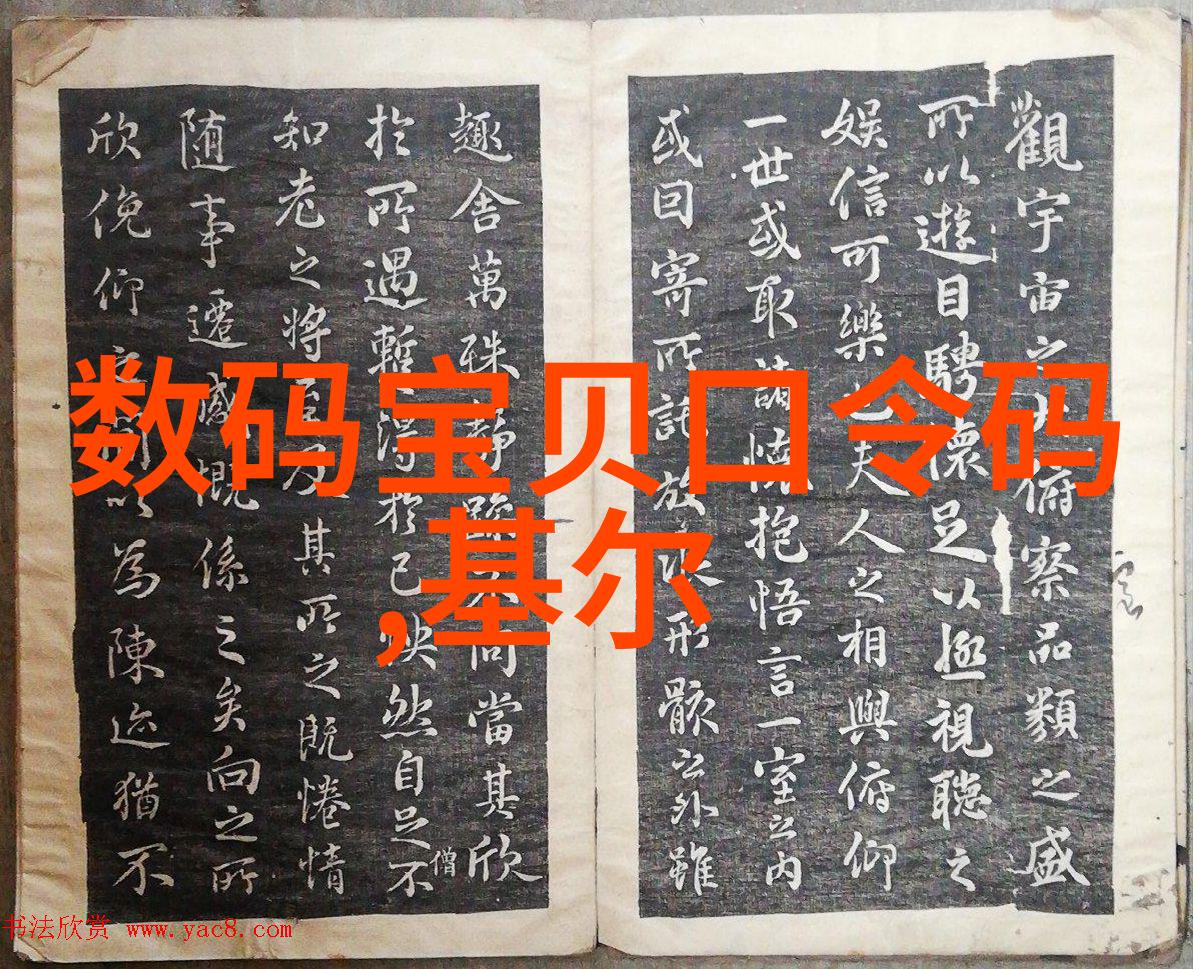 数码宝贝口令码
,基尔
觀宇宙之大俯察品類之盛
所以遊目騁懷足以極視聽之
娛信可樂也夫人之相與俯仰
一世或取諸懷抱悟言一室之内
或因寄所託放浪形骸之外雖
趣舍萬殊靜躁不同當其欣
於所遇暫得於己怏然自足不
僧
知老之將至及其所之既惓情
隨事遷感慨係之矣向之所
欣俛仰之間以為陳迹猶不
书法欣赏 www.yac8.com